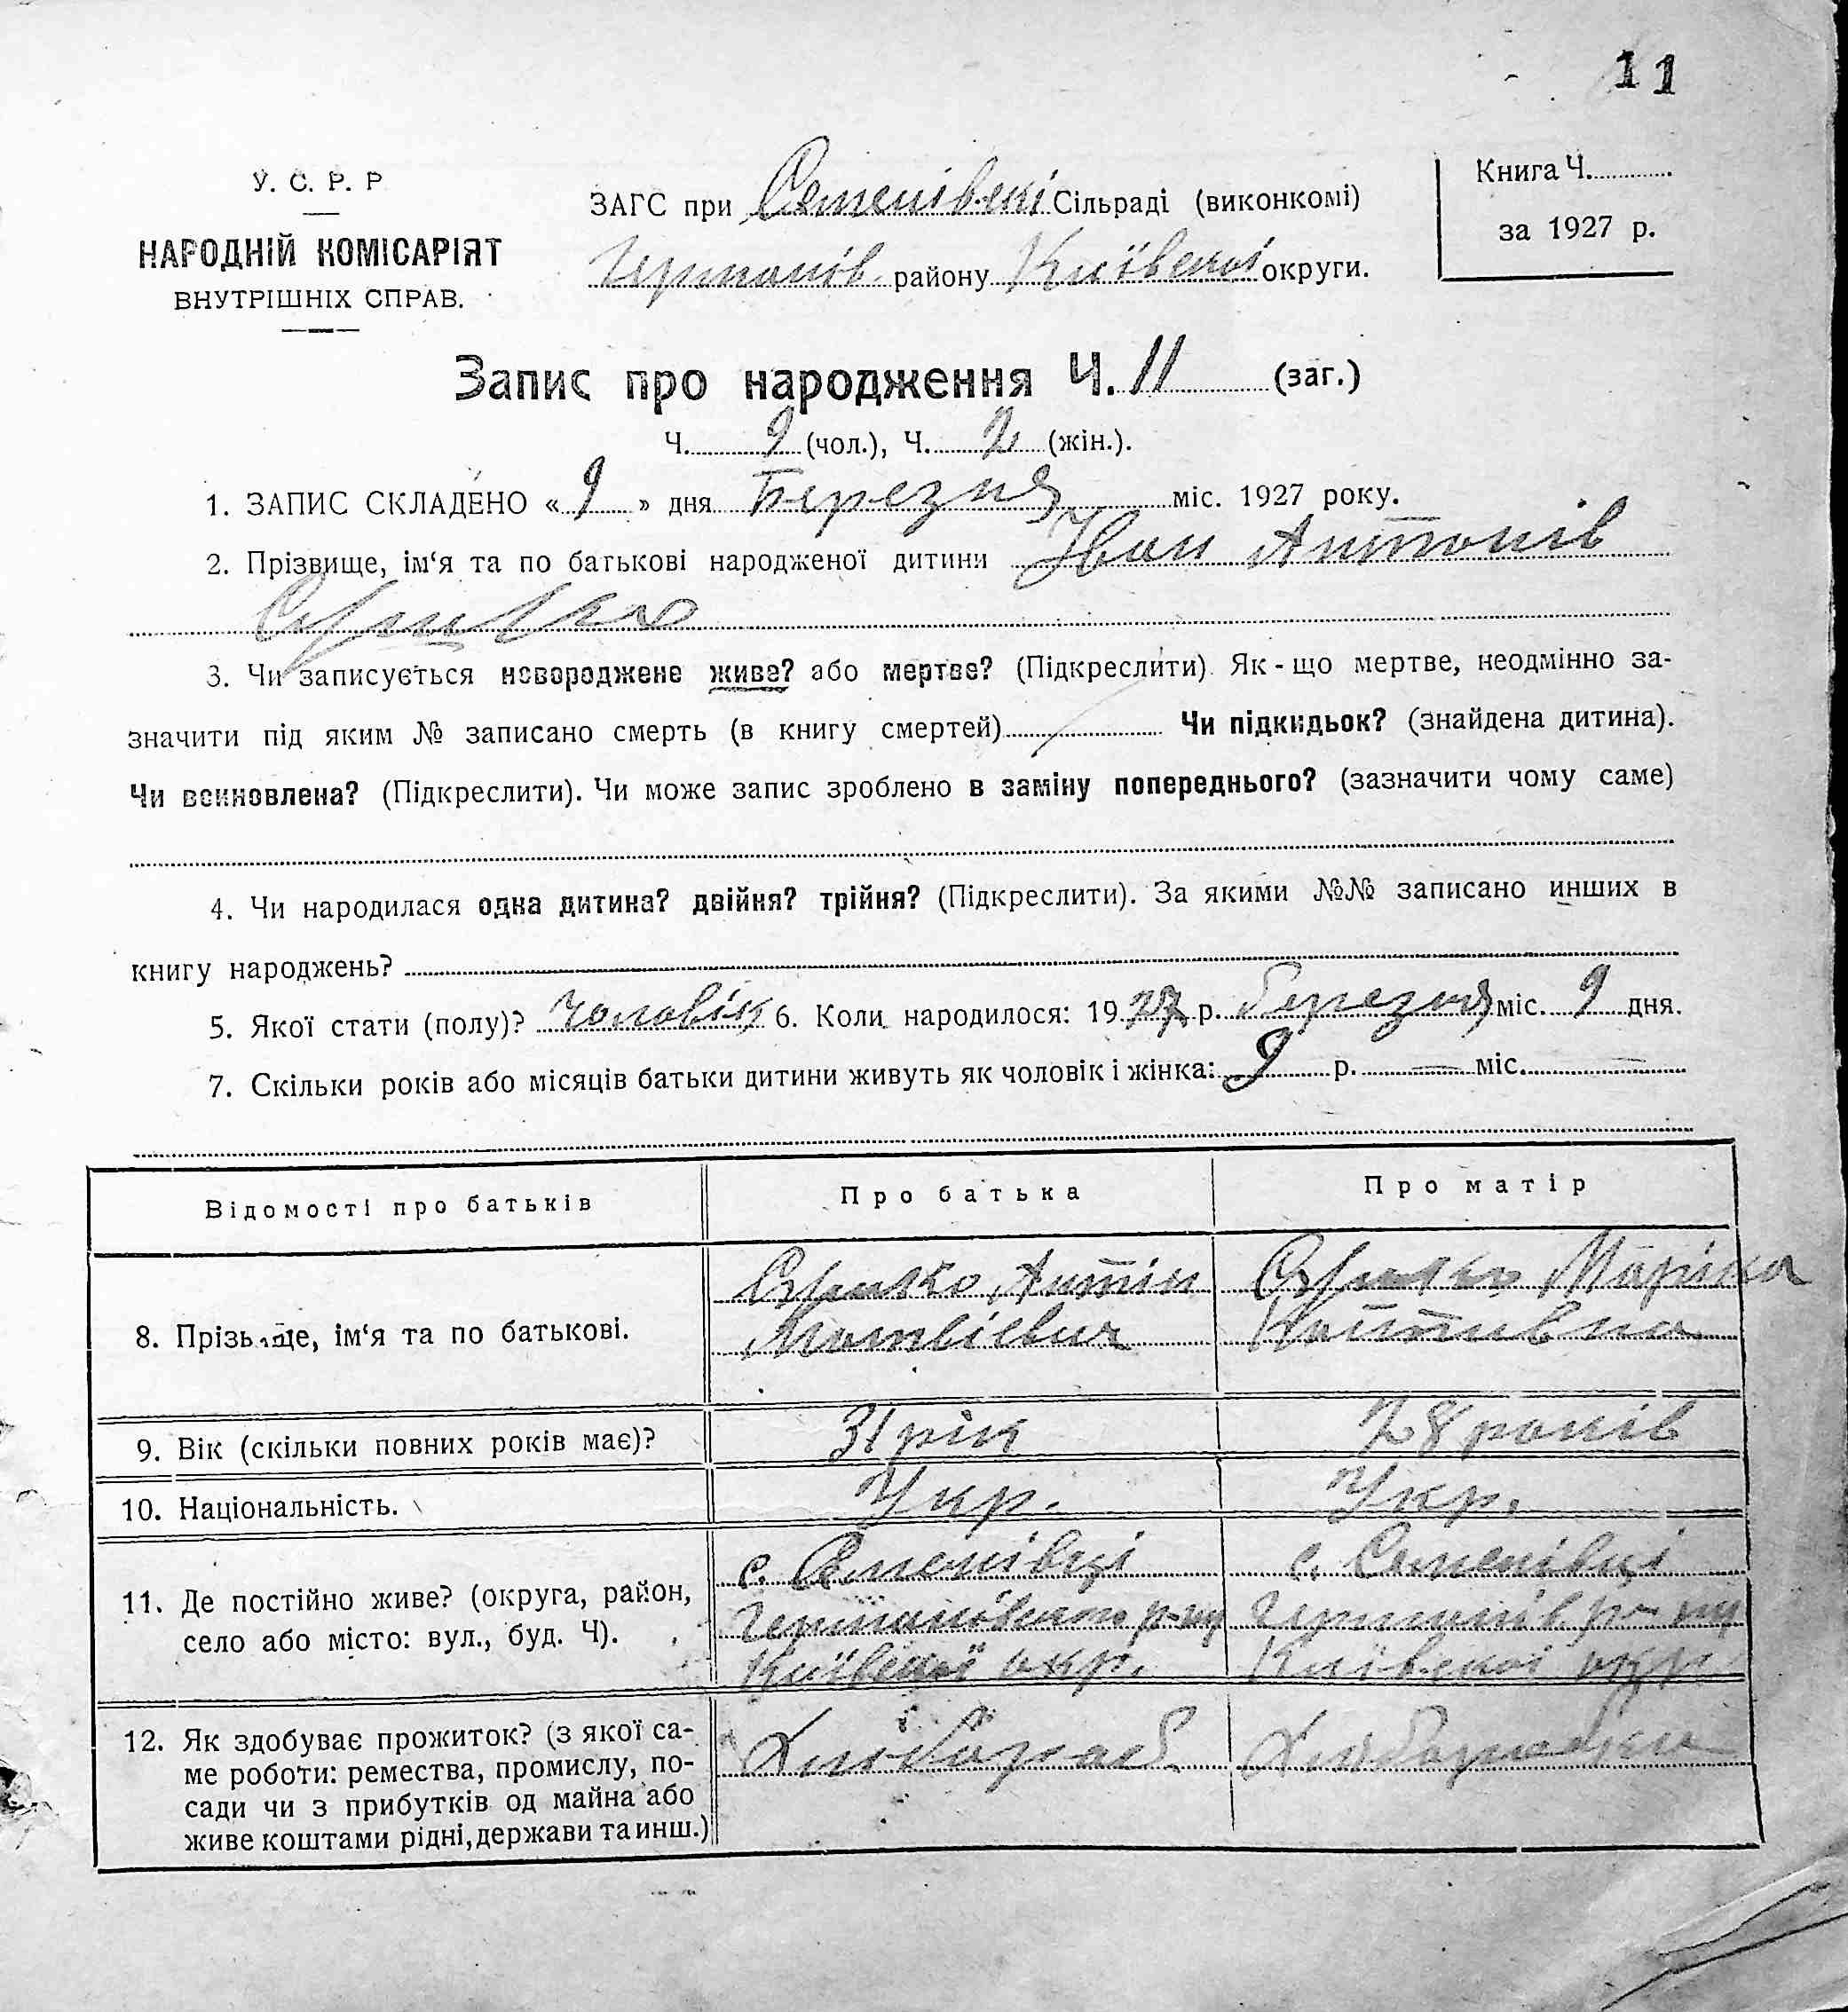 11
У. С. Р. Р
НАРОДНІЙ КОМІСАРІЯТ
ВНУТРІШНІХ СПРАВ.
ЗАГС при Семенівскі Сільраді (виконкомі)
Германів. району Київської округи.
Книга Ч.
за 1927 р.
Запис про народження Ч. 11 (заг.)
Ч. 9 (чол.), Ч. 2 (жін.).
1. ЗАПИС СКЛАДЕНО « 9 » дня Березня міс. 1927 року.
2. Прізвище, ім‘я та по батькові народженої дитини Іван Антонів
3. Чи записується новороджене живе? або мертве? (Підкреслити). Як-що мертве, неодмінно за-
значити під яким № записано смерть (в книгу смертей) Чи підкидьок? (знайдена дитина).
Чи всиновлена? (Підкреслити). Чи може запис зроблено в заміну попереднього? (зазначити чому саме)
4. Чи народилася одна дитина? двійня? трійня? (Підкреслити). За якими №№ записано инших в
книгу народжень?
5. Якої стати (полу)? чоловік 6. Коли народилося: 1927 р. березня міс. 9 дня.
7. Скільки років або місяців батьки дитини живуть як чоловік і жінка: 9 р. — міс. —
Відомості про батьків Про батька Про матір
8. Прізвище, ім‘я та по батькові. Антін Маріка
Матвієвич
9. Вік (скільки повних років має)? 31 рік 28 років
10. Національність. Укр. Укр.
11. Де постійно живе? (округа, район,
село або місто: вул., буд. Ч).
с. Семенівці с. Семенівці
Германівського р-ну Германів. р-ну
Київської окр. Київської окр.
12. Як здобуває прожиток? (з якої са-
ме роботи: ремества, промислу, по-
сади чи з прибутків од майна або
живе коштами рідні, держави та инш.)
Хлібороб Хліборобка